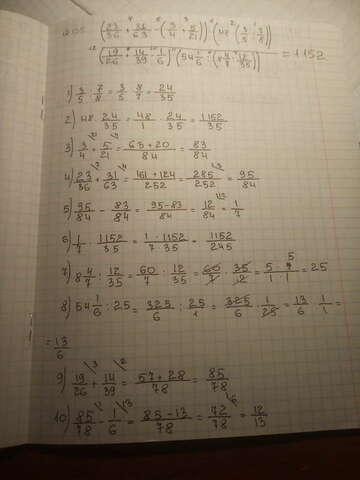 ((23/36 + 31/63 - (3/4 + 5/21)) · (48 · (3/5 : 7/8)
((19/26 + 14/39 - 1/6) · (54 1/6 : (8 4/7 : 12/35))) = 1152
1) 3/5 : 7/8 = 3/5 · 8/7 = 24/35
2) 48 · 24/35 = 48/1 · 24/35 = 1152/35
3) 3/4 + 5/21 = 63+20/84 = 83/84
4) 23/36 + 31/63 = 161+124/252 = 285/252 = 95/84
5) 95/84 - 83/84 = 95-83/84 = 12/84 = 1/7
6) 1/7 · 1152/35 = 1 · 1152/7 · 35 = 1152/245
7) 8 4/7 : 12/35 = 60/7 : 12/35 = 60/7 · 35/12 = 5 · 5/1 · 1 = 25
8) 54 1/6 : 25 = 325/6 : 25/1 = 325/6 · 1/25 = 13/6 · 1/1 =
= 13/6
9) 19/26 + 14/39 = 57+28/78 = 85/78
10) 85/78 - 1/6 = 85-13/78 = 72/78 = 12/13